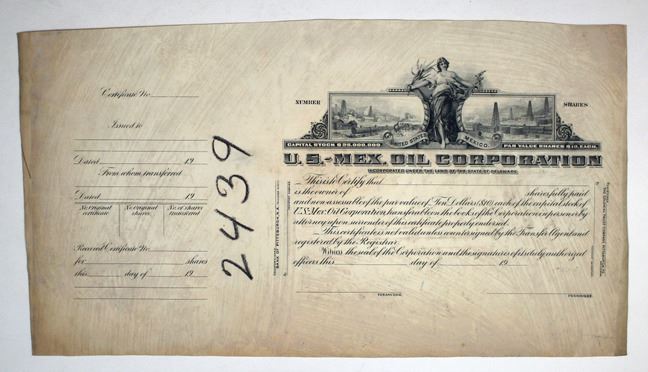 Certificate No.
Issued to
Dated 19
From whom transferred
Dated 19
No. original certificate
No. original shares
No. of shares transferred
Received Certificate No.
for shares
this day of 19
2439
NUMBER
SHARES
UNITED STATES
MEXICO.
CAPITAL STOCK $25,000,000.
PAR VALUE SHARES $10. EACH.
U.S.-MEX. OIL CORPORATION
INCORPORATED UNDER THE LAWS OF THE STATE OF DELAWARE.
This is to Certify that
is the owner of shares fully paid
and non-assessable of the par value of Ten Dollars ($10) each of the capital stock of
U.S.-Mex. Oil Corporation, transferable on the books of the Corporation in person or by
attorney upon surrender of this certificate properly endorsed.
This certificate is not valid unless countersigned by the Transfer Agent and
registered by the Registrar.
Witness the seal of the Corporation and the signatures of its duly authorized
officers this day of 19
TREASURER.
PRESIDENT.
BANK OF PITTSBURGH, N.A.